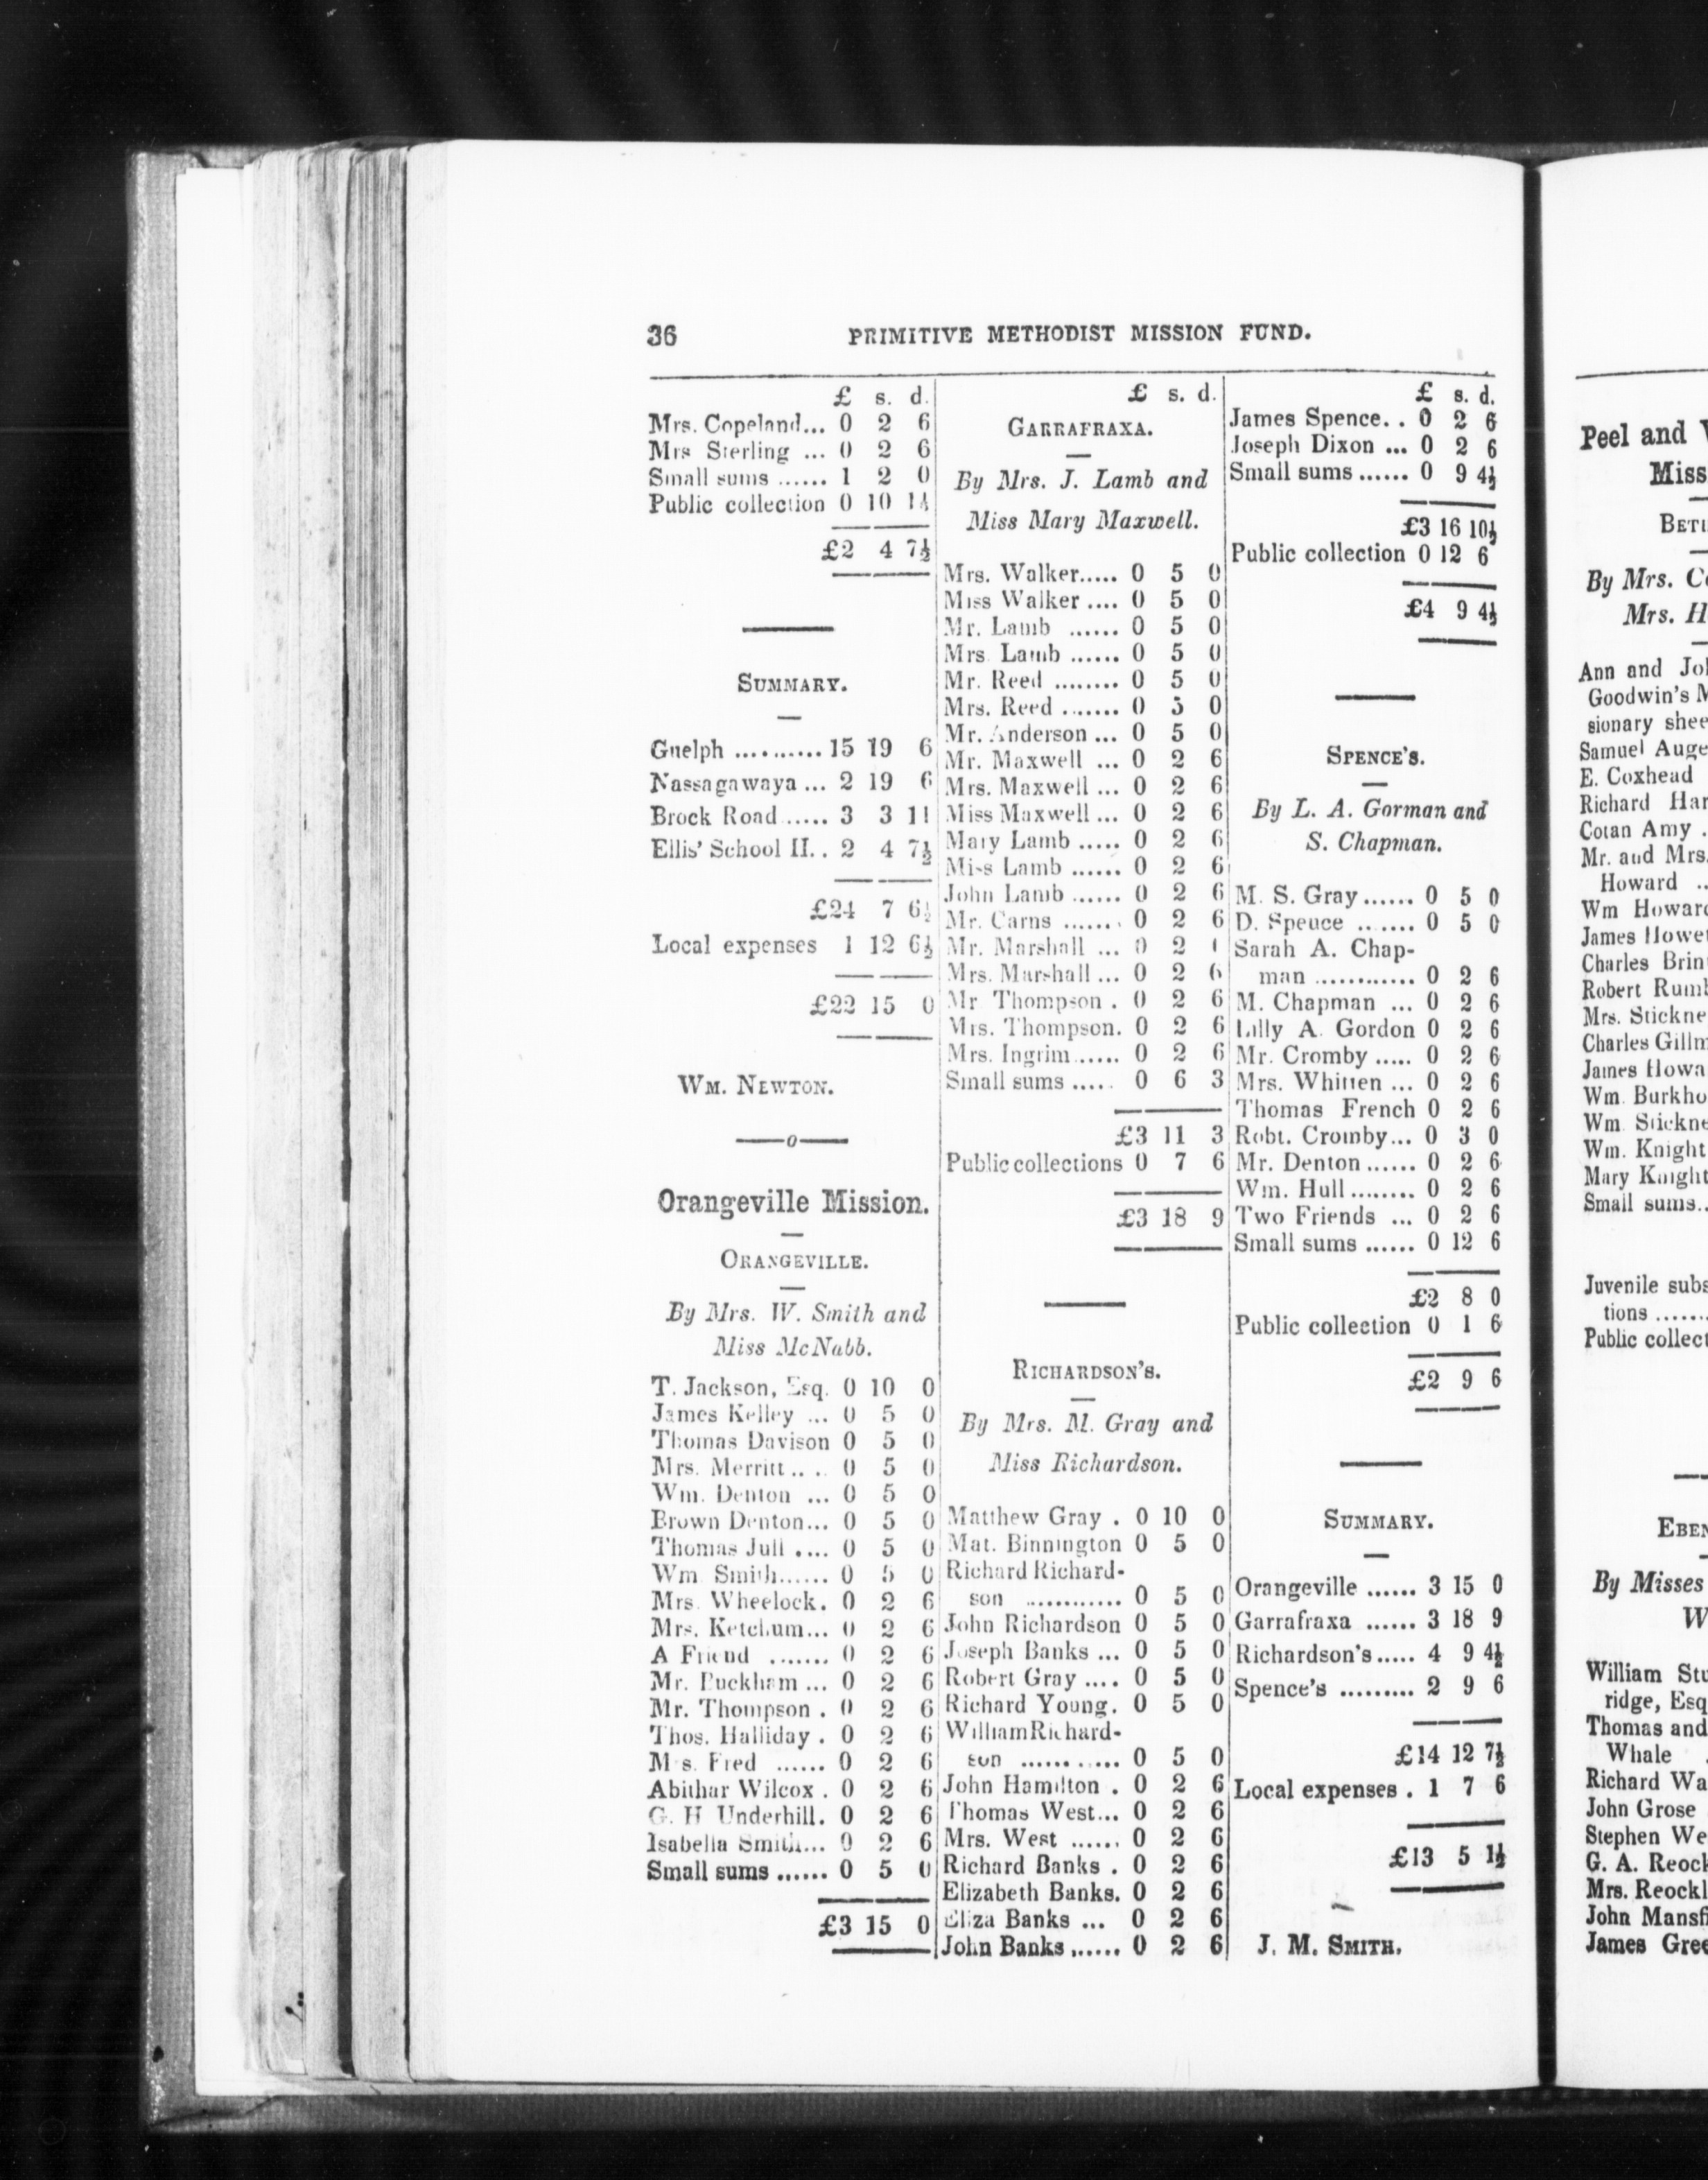 36 PRIMITIVE METHODIST MISSION FUND.
£ s. d.
Mrs. Copeland... 0 2 6
Mrs Sterling ... 0 2 6
Small sums ...... 1 2 0
Public collection 0 10 1½
£2 4 7½
SUMMARY.
Guelph .......... 15 19 6
Nassagawaya ... 2 19 6
Brock Road ..... 3 3 11
Ellis' School H. . 2 4 7½
£24 7 6½
Local expenses 1 12 6½
£22 15 0
WM. NEWTON.
o
Orangeville Mission.
ORANGEVILLE.
By Mrs. W. Smith and
Miss McNabb.
T. Jackson, Esq. 0 10 0
James Kelley ... 0 5 0
Thomas Davison 0 5 0
Mrs. Merritt .. . . 0 5 0
Wm. Denton ... 0 5 0
Brown Denton... 0 5 0
Thomas Jull .... 0 5 0
Wm. Smith...... 0 5 0
Mrs. Wheelock. 0 2 6
Mrs. Ketchum... 0 2 6
A Friend ....... 0 2 6
Mr. Puckham ... 0 2 6
Mr. Thompson . 0 2 6
Thos. Halliday . 0 2 6
M s. Fred ...... 0 2 6
Abithar Wilcox . 0 2 6
G. H Underhill. 0 2 6
Isabella Smith... 0 2 6
Small sums ...... 0 5 0
£3 15 0
£ s. d.
GARRAFRAXA.
By Mrs. J. Lamb and
Miss Mary Maxwell.
Mrs. Walker..... 0 5 0
Miss Walker .... 0 5 0
Mr. Lamb ...... 0 5 0
Mrs. Lamb ...... 0 5 0
Mr. Reed ........ 0 5 0
Mrs. Reed ....... 0 5 0
Mr. Anderson ... 0 5 0
Mr. Maxwell ... 0 2 6
Mrs. Maxwell ... 0 2 6
Miss Maxwell ... 0 2 6
Mary Lamb ..... 0 2 6
Miss Lamb ...... 0 2 6
John Lamb ...... 0 2 6
Mr. Carns ....... 0 2 6
Mr. Marshall ... 0 2
Mrs. Marshall ... 0 2 6
Mr Thompson . 0 2 6
Mrs. Thompson. 0 2 6
Mrs. Ingrim...... 0 2 6
Small sums ..... 0 6 3
£3 11 3
Public collections 0 7 6
£3 18 9
RICHARDSON'S.
By Mrs. M. Gray and
Miss Richardson.
Matthew Gray . 0 10 0
Mat. Binnington 0 5 0
Richard Richard-
son ............ 0 5 0
John Richardson 0 5 0
Joseph Banks ... 0 5 0
Robert Gray .... 0 5 0
Richard Young. 0 5 0
William Richard-
son ............ 0 5 0
John Hamilton . 0 2 6
Thomas West... 0 2 6
Mrs. West ...... 0 2 6
Richard Banks . 0 2 6
Elizabeth Banks. 0 2 6
Eliza Banks ... 0 2 6
John Banks...... 0 2 6
£ s. d.
James Spence. . 0 2 6
Joseph Dixon ... 0 2 6
Small sums ...... 0 9 4½
£3 16 10½
Public collection 0 12 6
£4 9 4½
SPENCE'S.
By L. A. Gorman and
S. Chapman.
M. S. Gray...... 0 5 0
D. Spence ....... 0 5 0
Sarah A. Chap-
man ............ 0 2 6
M. Chapman ... 0 2 6
Lilly A. Gordon 0 2 6
Mr. Cromby ..... 0 2 6
Mrs. Whitten ... 0 2 6
Thomas French 0 2 6
Robt. Cromby... 0 3 0
Mr. Denton ...... 0 2 6
Wm. Hull........ 0 2 6
Two Friends ... 0 2 6
Small sums ...... 0 12 6
£2 8 0
Public collection 0 1 6
£2 9 6
SUMMARY.
Orangeville ...... 3 15 0
Garrafraxa ...... 3 18 9
Richardson's ..... 4 9 4½
Spence's ......... 2 9 6
£14 12 7½
Local expenses . 1 7 6
£13 5 1½
J. M. SMITH.
Peel and
Miss
BET
By Mrs.
Mrs. H
Ann and Jo
Goodwin's M
sionary shee
Samuel Auge
E. Coxhead
Richard Har
Cotan Amy .
Mr. and Mrs.
Howard ..
Wm Howar
James Howe
Charles Brin
Robert Rum
Mrs. Stickne
Charles Gill
James Howa
Wm. Burkho
Wm. Stickne
Wm. Knight
Mary Knight
Small sums..
Juvenile subs
tions .......
Public collect
EBEN
By Misses
W
William Stu
ridge, Esq
Thomas and
Whale .
Richard Wa
John Grose
Stephen We
G. A. Reock
Mrs. Reockl
John Mansf
James Gree